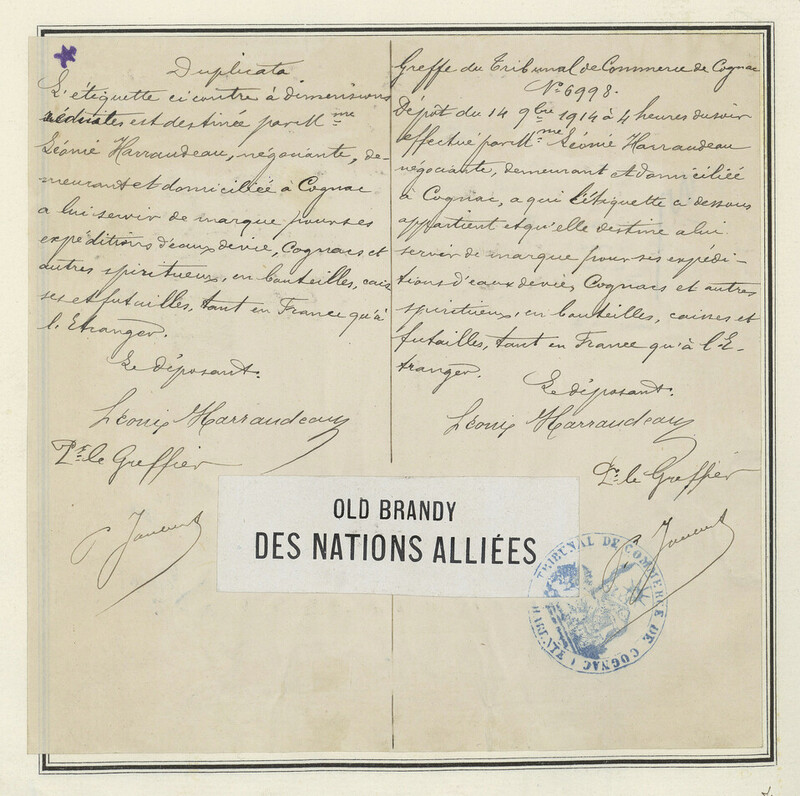 Duplicata
L'étiquette ci contre à dimensions
réduites est destinée par Mme
Léonie Harraudeau, négociante, de-
meurant et domiciliée à Cognac
a lui servir de marque pour ses
expéditions d'eaux de vie, Cognacs et
autres spiritueux, en bouteilles, cais
ses et futailles, tant en France qu'à
l'Etranger.
Le déposant.
Léonie Harraudeau
Pr. le Greffier
Greffe du Tribunal de Commerce de Cognac
No 6998.
Dépôt du 14 9bre 1914 à 4 heures du soir
effectué par Mme Léonie Harraudeau
négociante, demeurant et domiciliée
à Cognac, a qui l'étiquette ci dessous
appartient et qu'elle destine a lui
servir de marque pour ses expédi-
tions d'eaux de vie, Cognacs et autres
spiritueux, en bouteilles, caisses et
futailles, tant en France qu'à l'E-
tranger.
Le déposant.
Léonie Harraudeau
Pr. le Greffier
OLD BRANDY
DES NATIONS ALLIÉES
TRIBUNAL DE COMMERCE DE COGNAC